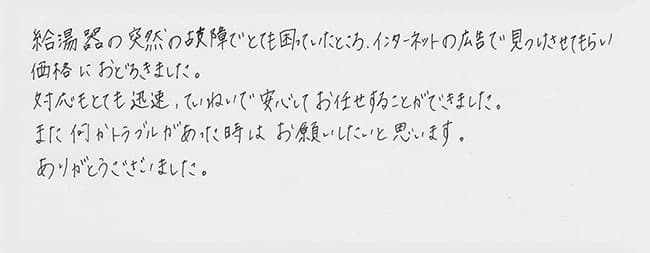 給湯器の突然の故障でとても困っていたところ、インターネットの広告で見つけさせてもらい
価格におどろきました。
対応もとても迅速、ていねいで安心してお任せすることができました。
また何かトラブルがあった時はお願いしたいと思います。
ありがとうございました。